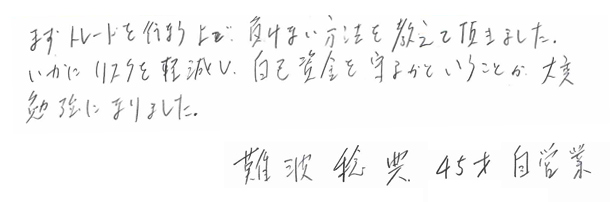 まずトレードを行なう上で、負けない方法を教えて頂きました。
いかにリスクを軽減し、自己資金を守るかということが、大変
勉強になりました。
難波 稔典 45才 自営業